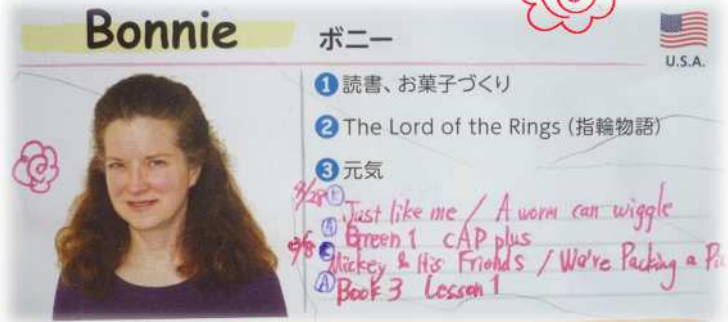 Bonnie ボニー
U.S.A.
① 読書、お菓子づくり
② The Lord of the Rings (指輪物語)
③ 元気
Just like me / A worm can wiggle
Green 1 CAP plus
Mickey & His Friends / We're Packing a
Book 3 Lesson 1